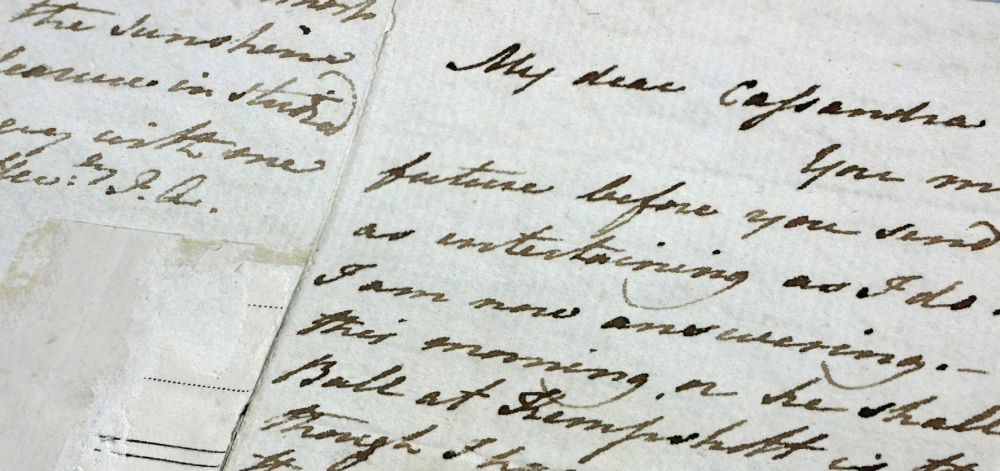 the sunshine
in
with
J. A.
My dear Caſsandra
You
future before you send
as entertaining as I do.
I am now answering. –
this morning, or he shall
Ball at Kempshott is
though I